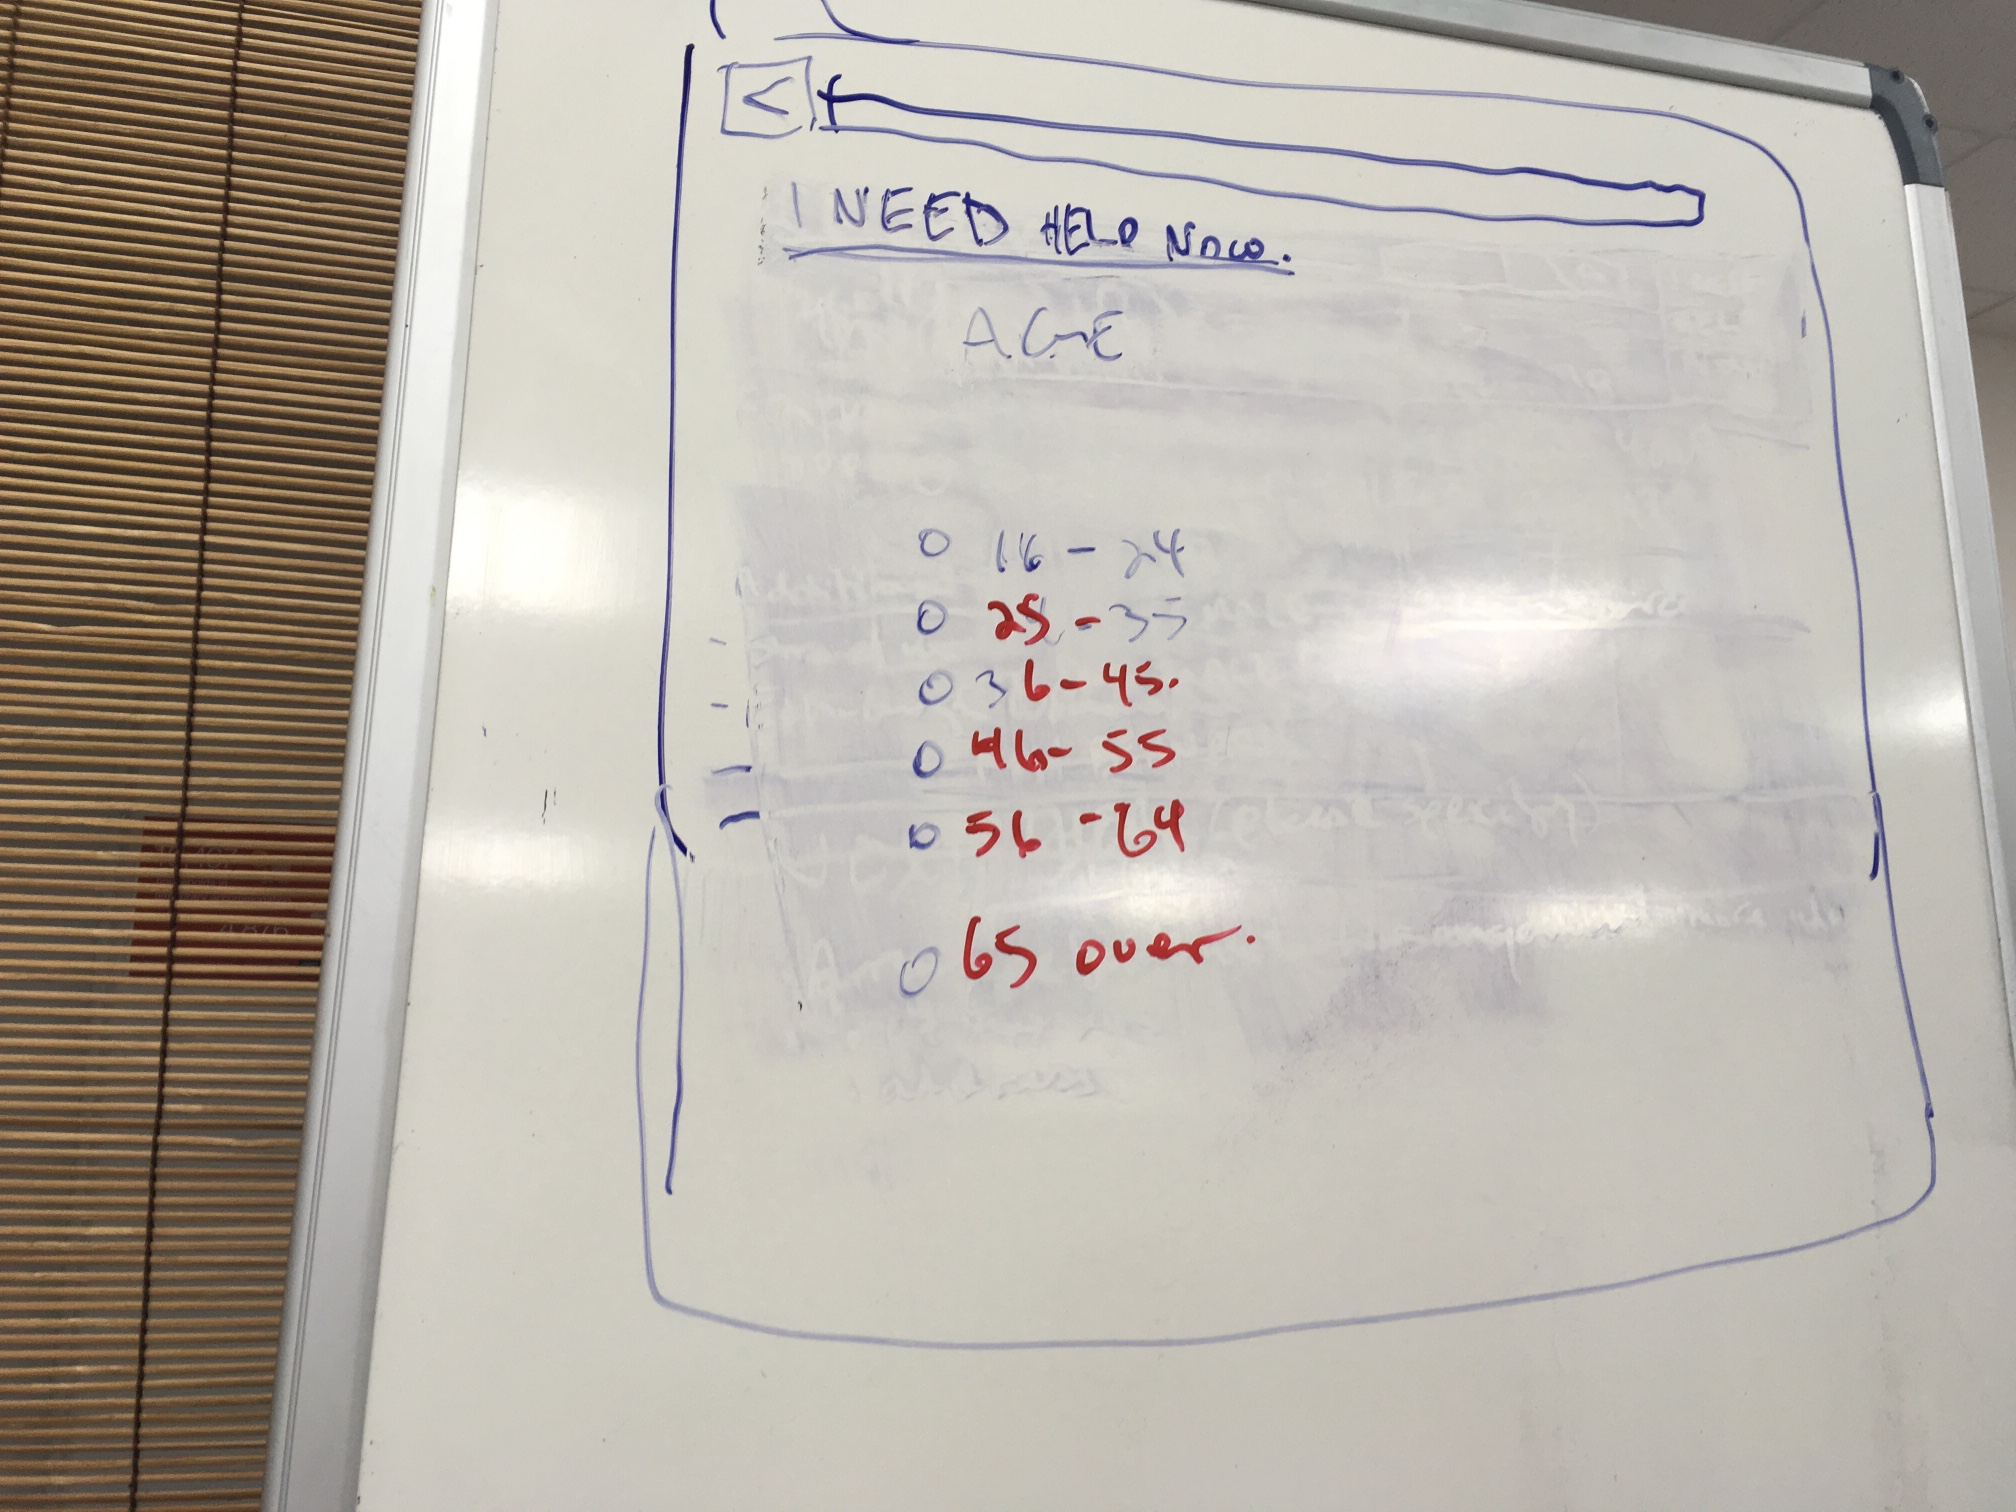 <
I NEED HELP NOW.
AGE
O 16 - 24
O 25 - 35
O 36 - 45.
O 46 - 55
O 56 - 64
O 65 over.